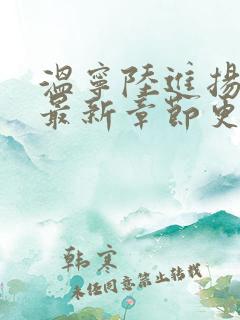 温宁陆进扬
最新章节史
韩寒
未经同意禁止转载